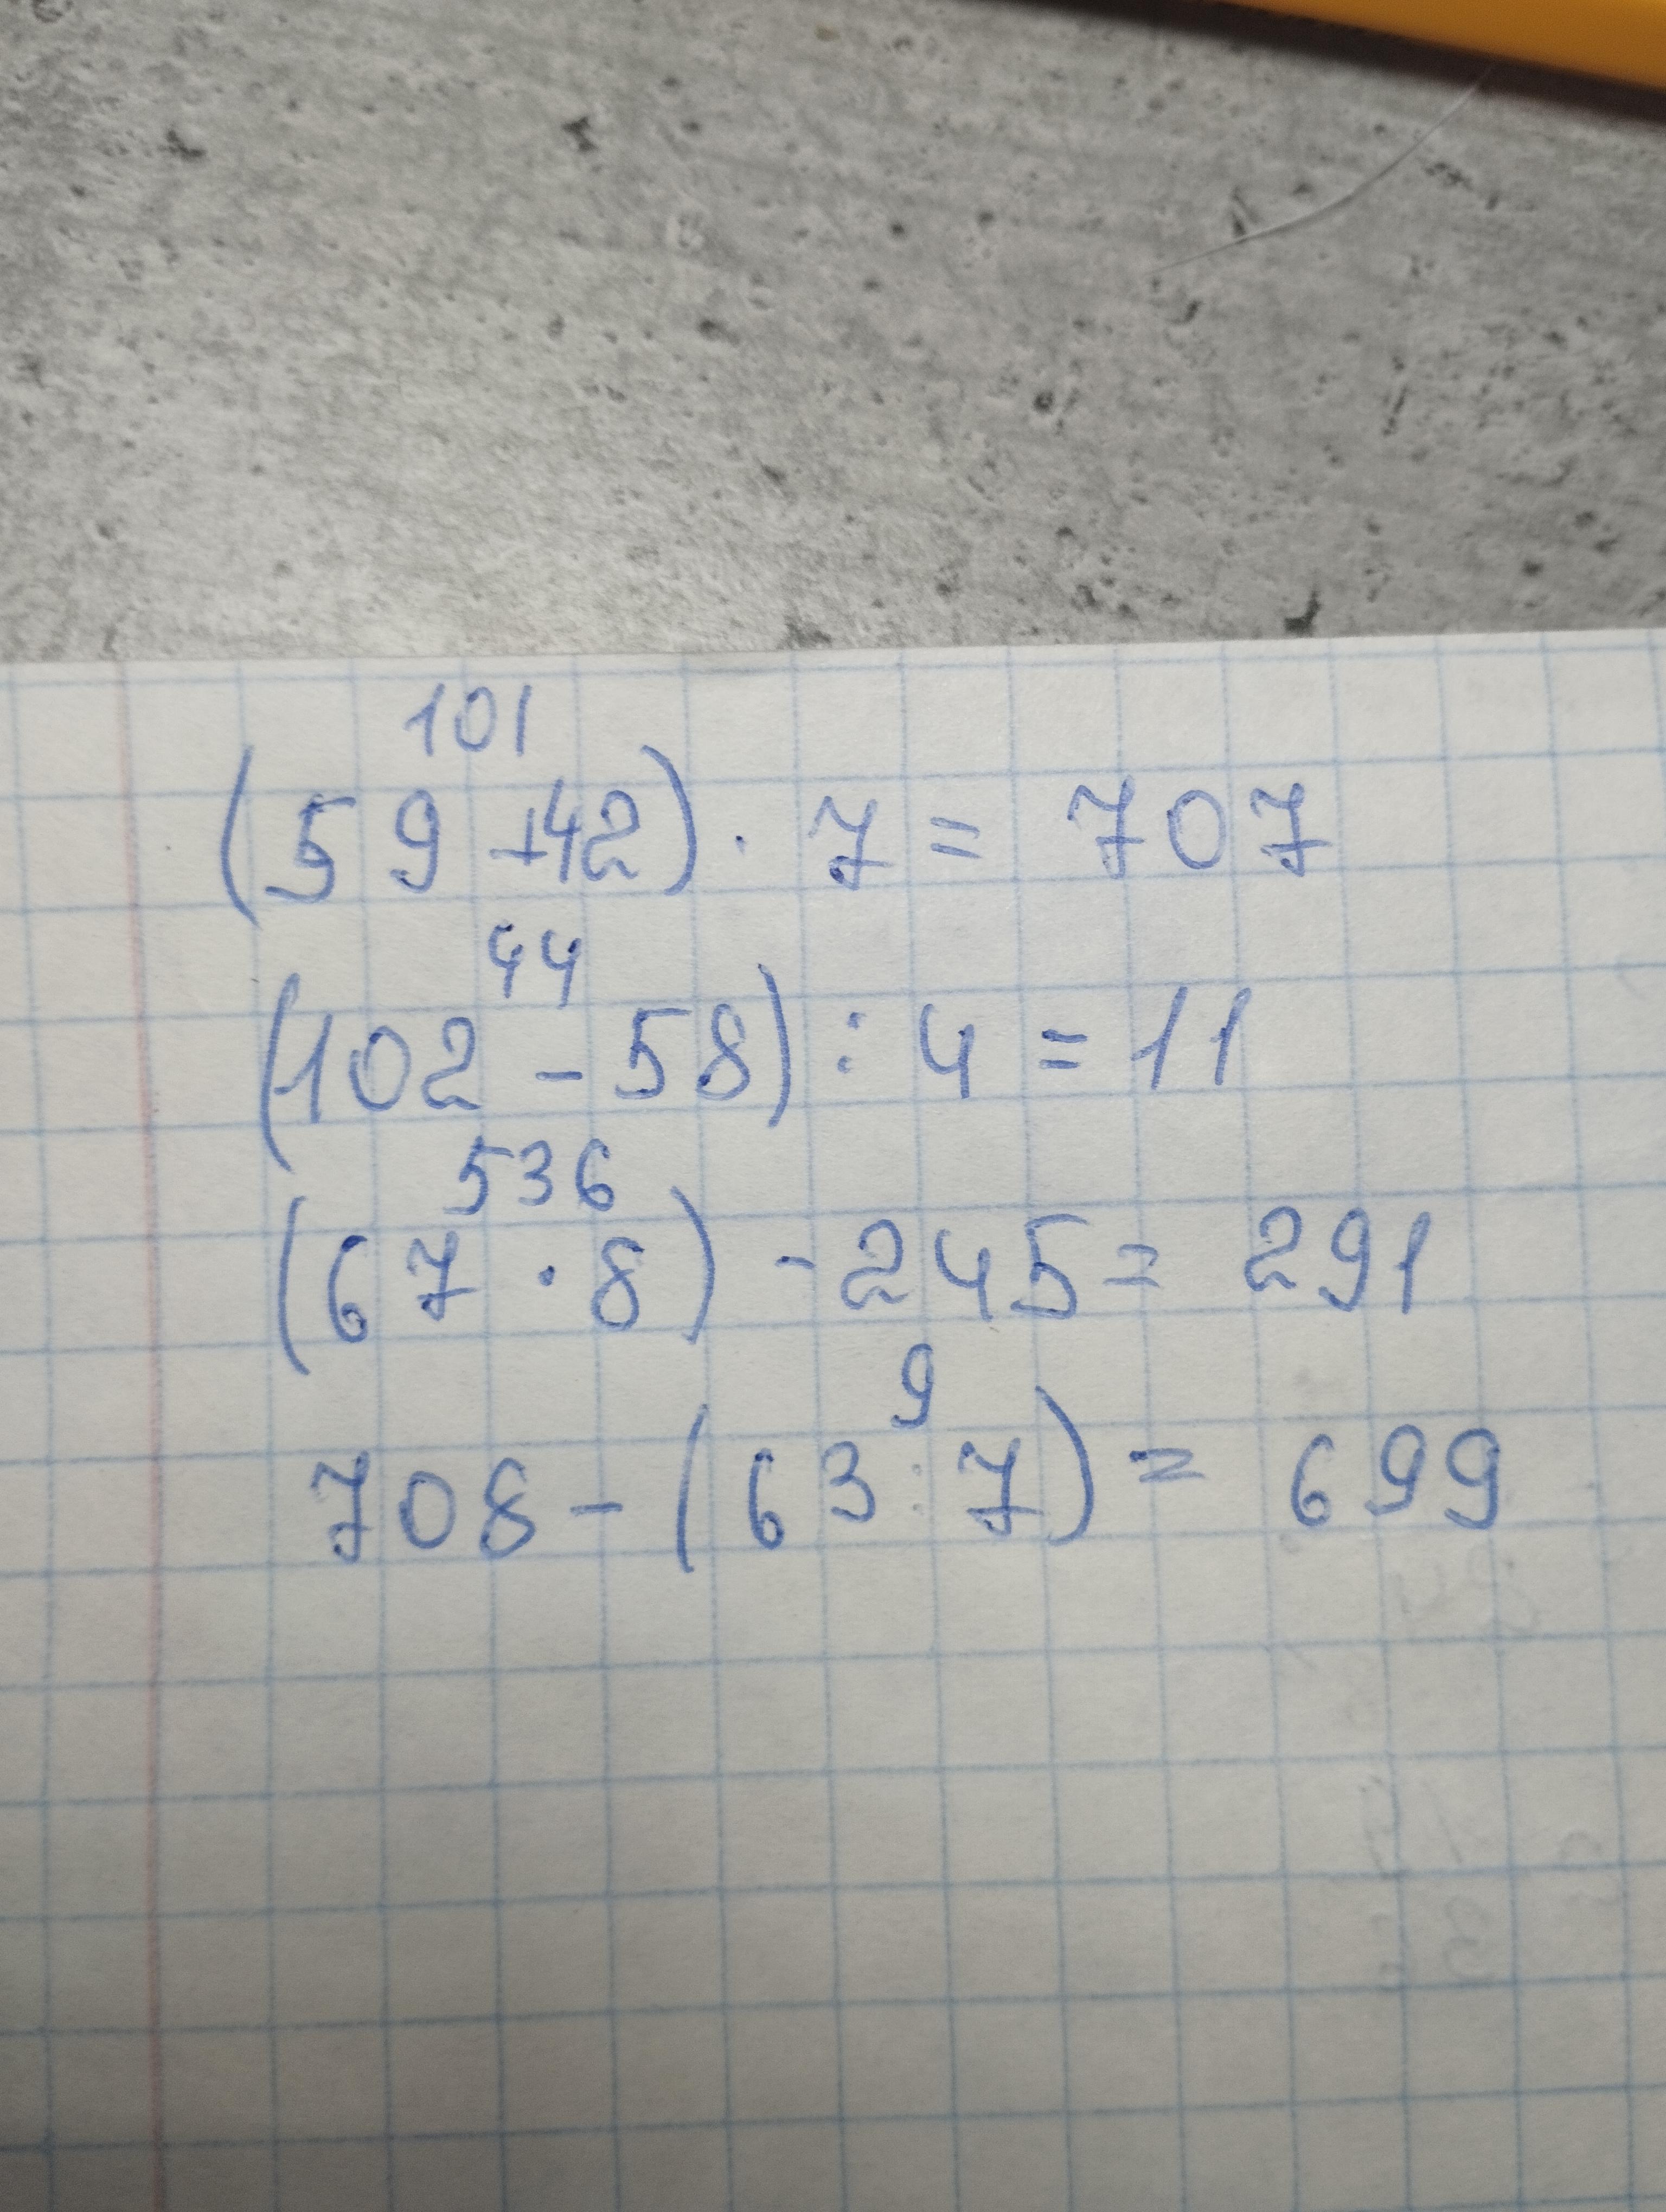 101
(59+42) · 7 = 707
44
(102 - 58) : 4 = 11
536
(67 · 8) - 245 = 291
9
708 - (63 : 7) = 699